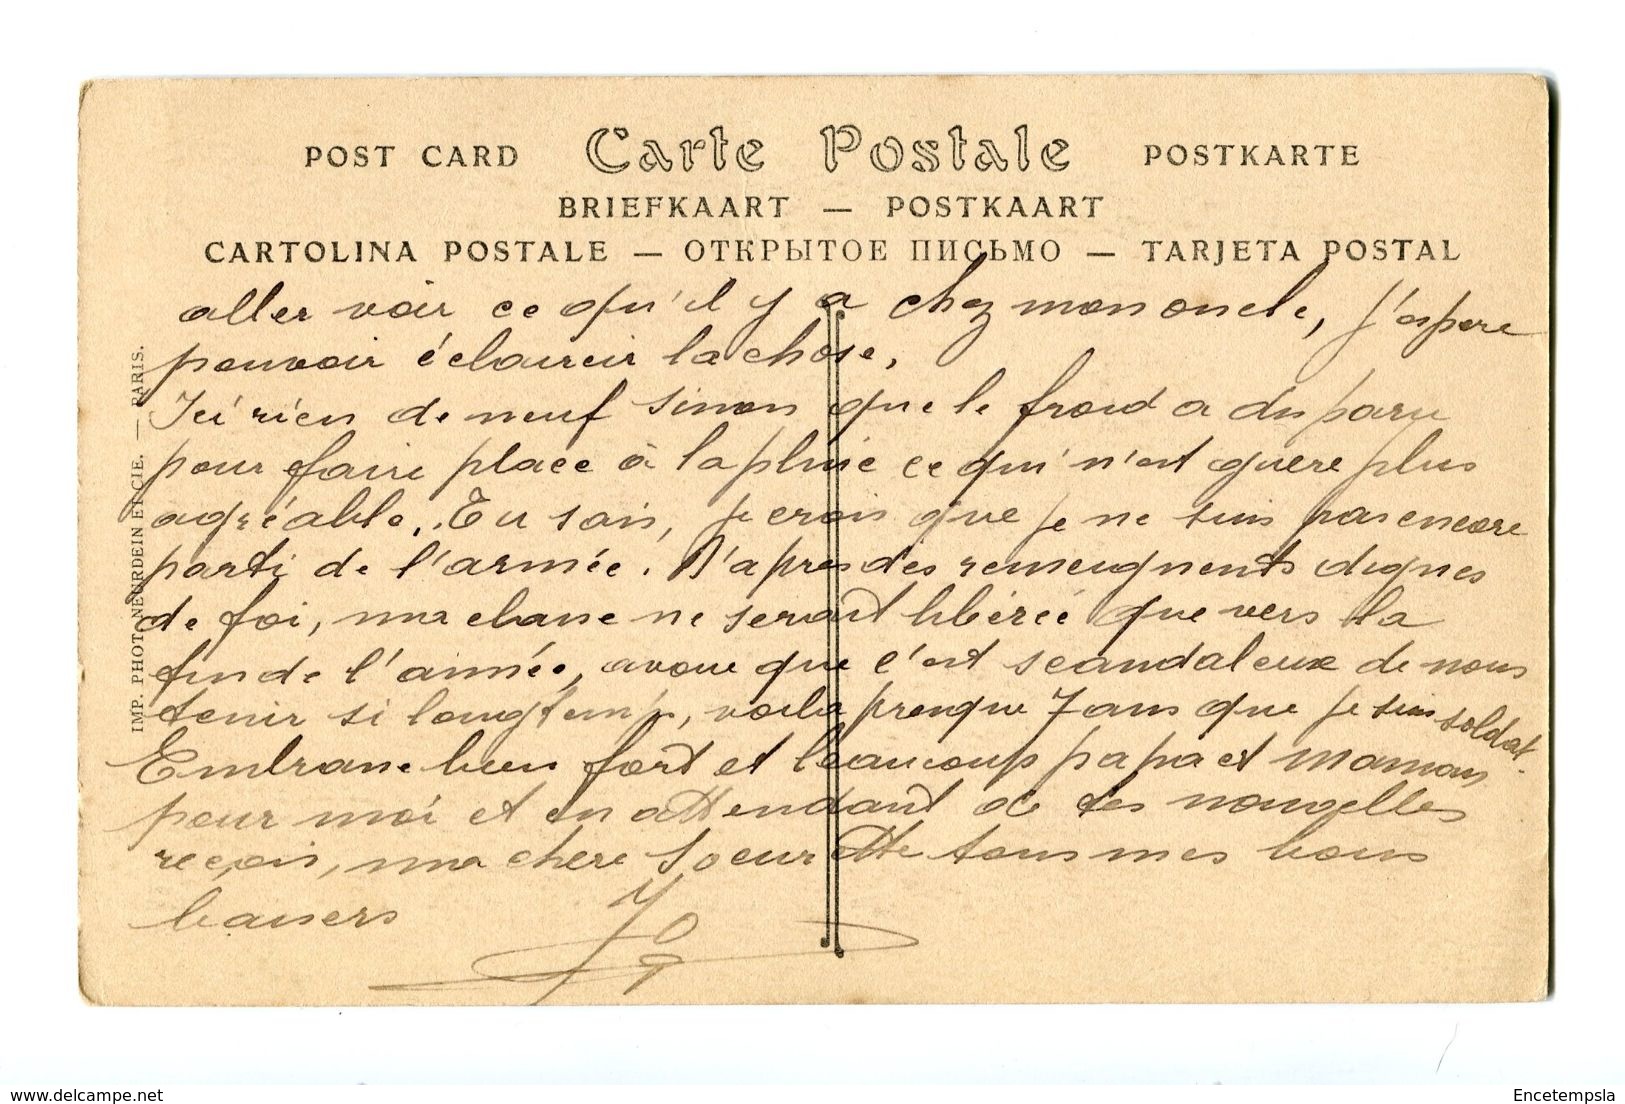 POST CARD Carte Postale POSTKARTE
BRIEFKAART — POSTKAART
CARTOLINA POSTALE — ОТКРЫТОЕ ПИСЬМО — TARJETA POSTAL
aller voir ce qu'il y a chez mon oncle, j'espere
pouvoir éclaircir la chose.
Ici rien de neuf sinon que le froid a disparu
pour faire place à la pluie ce qui n'est guere plus
agréable. Tu sais, je crois que je ne suis pas encore
parti de l'armée. D'apres des renseignements dignes
de foi, ma classe ne serait libérée que vers la
fin de l'année, avoue que c'est scandaleux de nous
tenir si longtemps, voila presque 7 ans que je suis soldat.
Embrasse bien fort et beaucoup papa et maman
pour moi et en attendant de tes nouvelles
reçois, ma chere soeurette tous mes bons
baisers
IMP. PHOT. NEURDEIN ET CIE. — PARIS.
Encetempsla